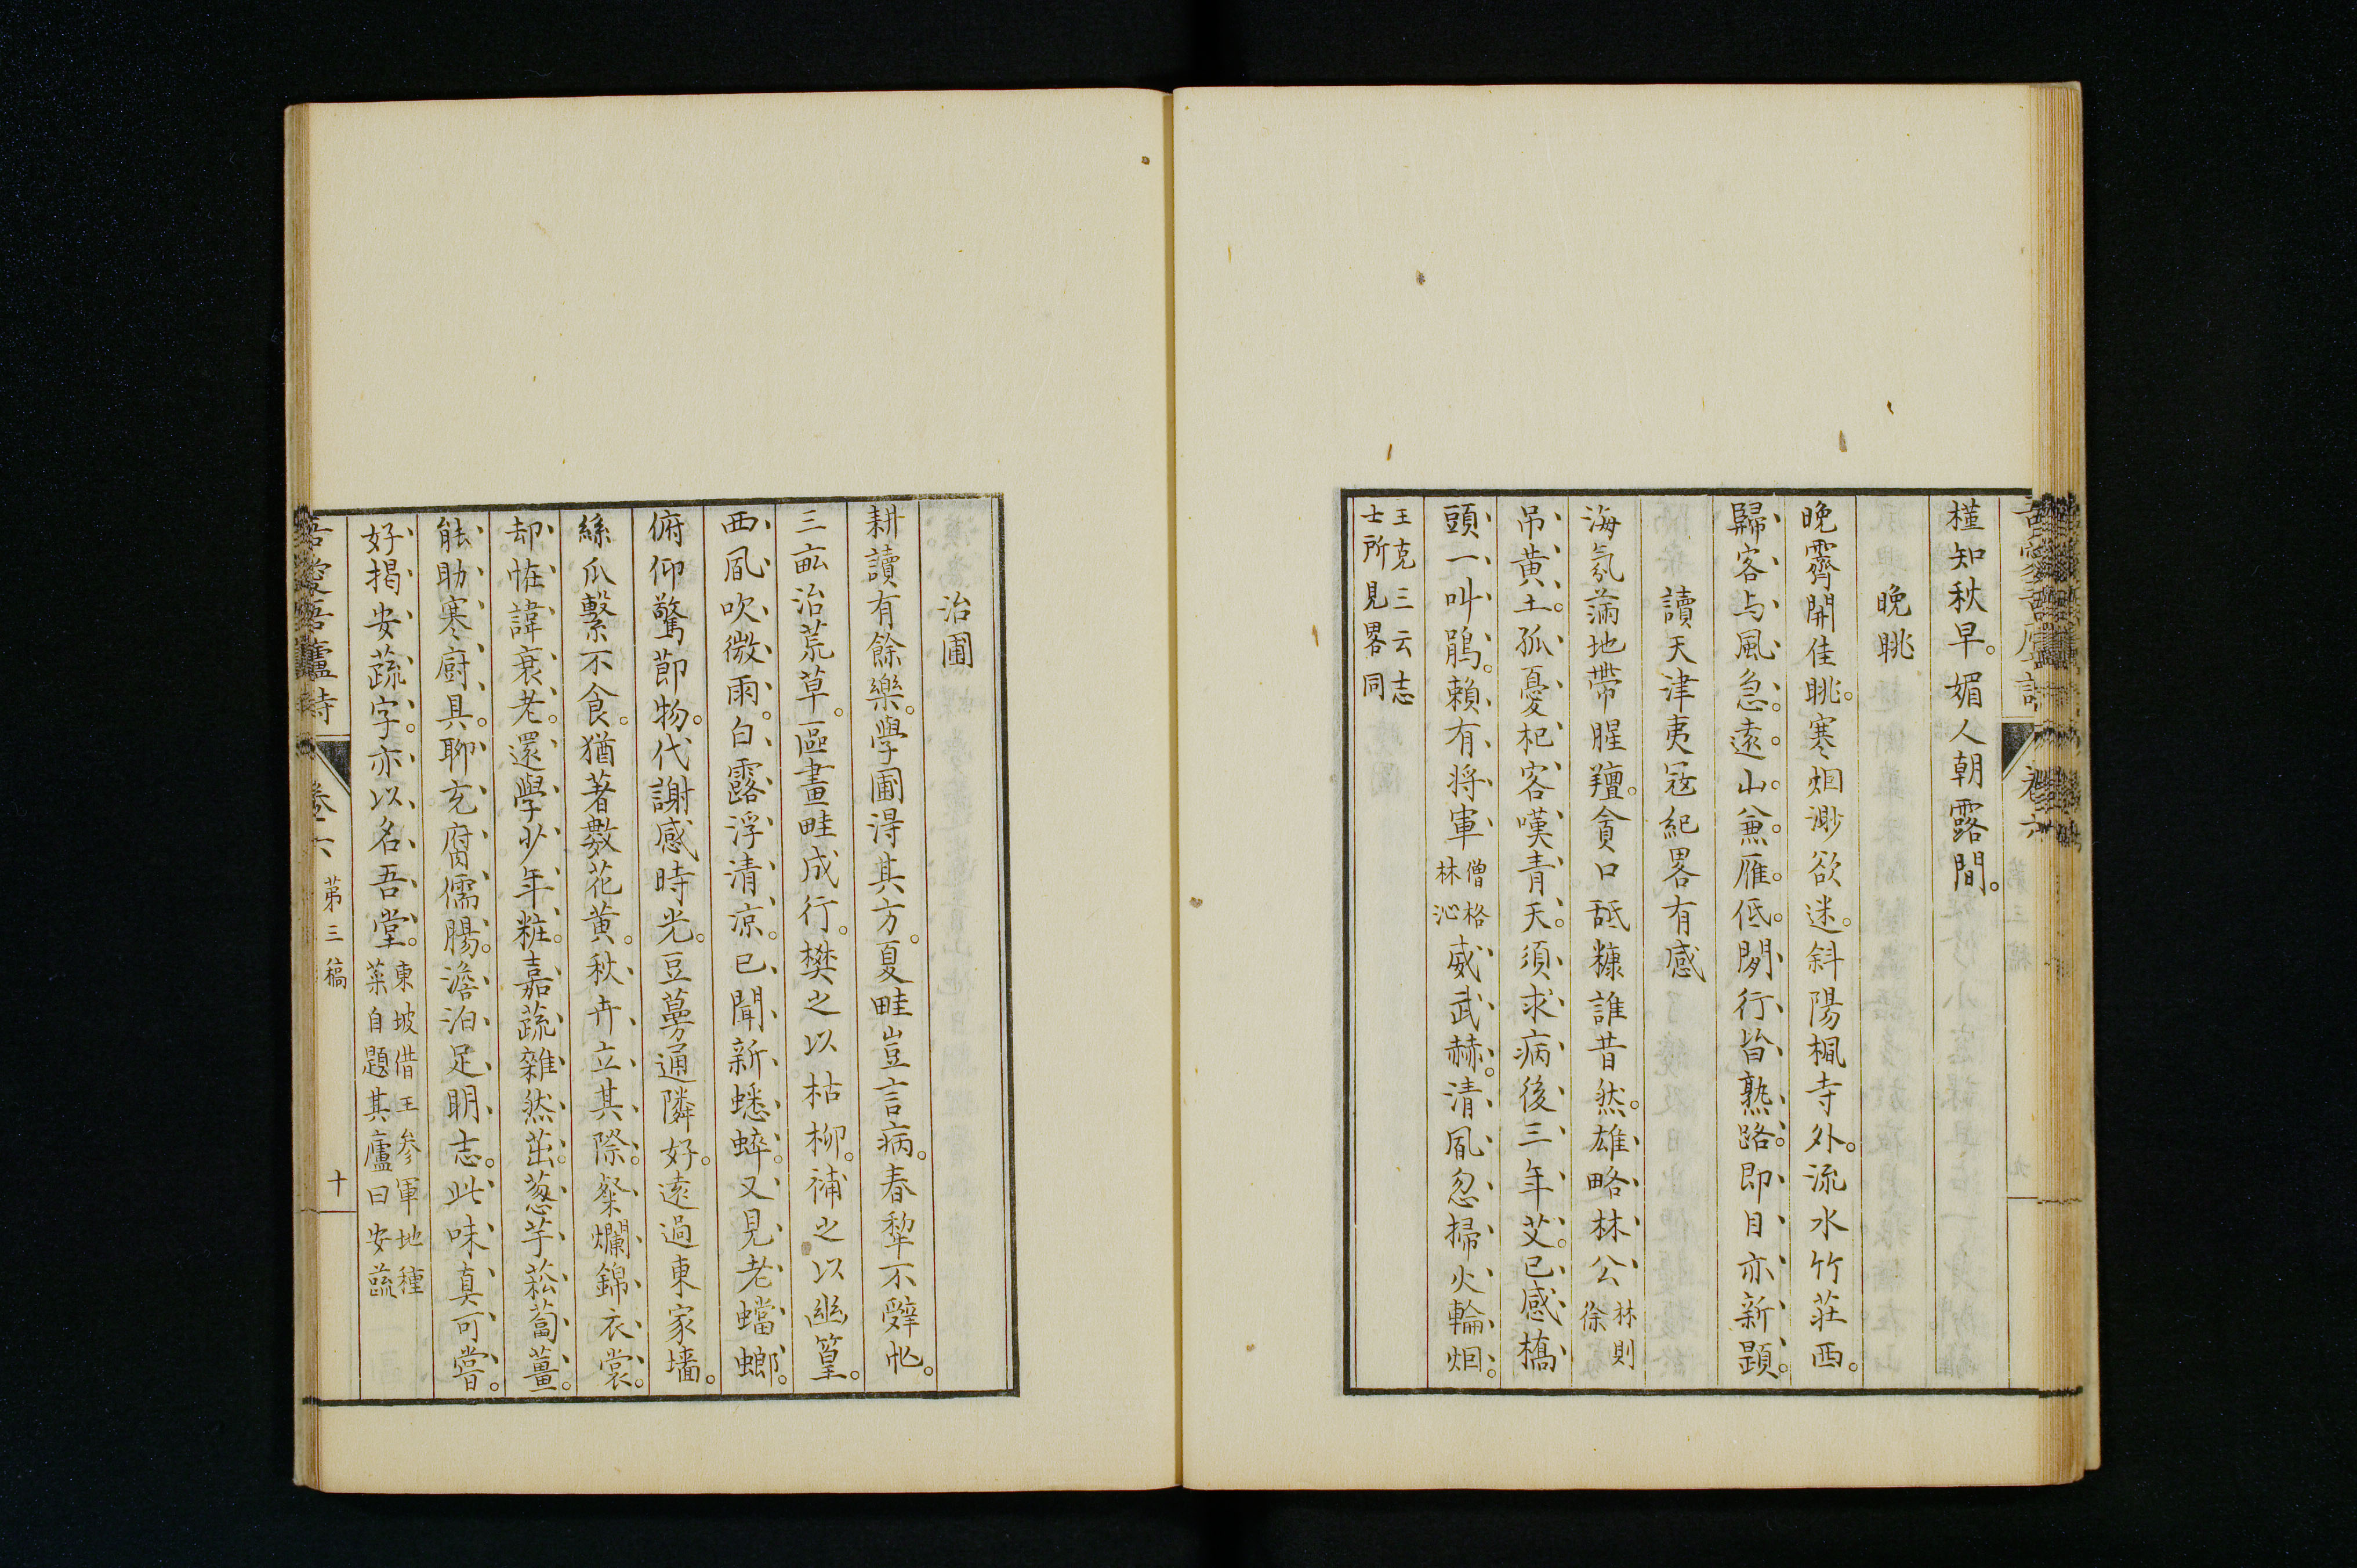 槿知秋早。媚人朝露間。
晚眺
晚霽開佳眺。寒烟渺欲迷。斜陽楓寺外。流水竹莊西。
歸客与風急。遠山兼雁低。閒行皆熟路。即目亦新題。
讀天津夷冦紀畧有感
海氛滿地帶腥羶。貪口䑛糠誰昔然。雄略林公林則徐
吊黄土。孤憂杞客嘆青天。須求病後三年艾。已感橋
頭一叫鵑。賴有将軍僧格林沁威武赫。清風忽掃火輪烟。
王克三云志
士所見畧同
治圃
耕讀有餘樂。學圃淂其方。夏畦豈言病。春犂不辤忙。
三畝治荒草。區畫畦成行。樊之以枯柳。補之以幽篁。
西風吹微雨。白露浮清凉。已聞新蟋蟀。又見老蟷螂。
俯仰驚節物。代謝感時光。豆蔓通隣好。遠過東家墻。
絲瓜繫不食。猶著數花黄。秋卉立其際。粲爛錦衣裳。
却恠諱衰老。還學少年粧。嘉蔬雜然茁。葱芋菘蔔薑。
能助寒廚具。聊充腐儒腸。澹泊足明志。此味真可嘗。
好揭安蔬字。亦以名吾堂。東坡借王参軍地種菜自題其廬曰安蔬
吾愛吾廬詩 卷六 第三稿 十